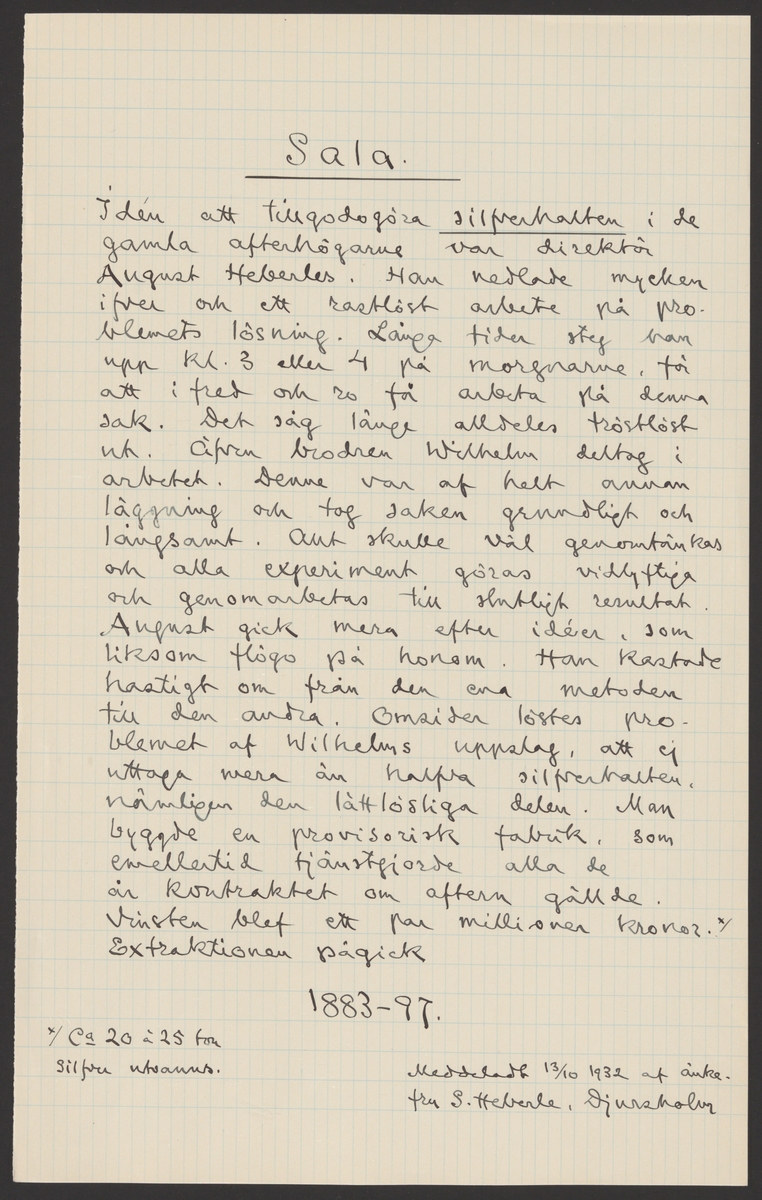 Sala.
Idén att tillgodogöra silfverhalten i de
gamla afterhögarne var direktör
August Heberles. Han nedlade mycken
ifver och ett rastlöst arbete på pro-
blemets lösning. Långa tider steg han
upp kl. 3 eller 4 på morgnarne, för
att i fred och ro få arbeta på denna
sak. Det såg länge alldeles tröstlöst
ut. Äfven brodren Wilhelm deltog i
arbetet. Denne var af helt annan
läggning och tog saken grundligt och
långsamt. Allt skulle väl genomtänkas
och alla experiment göras vidlyftiga
och genomarbetas till slutligt resultat.
August gick mera efter idéer, som
liksom flögo på honom. Han kastade
hastigt om från den ena metoden
till den andra. Omsider löstes pro-
blemet af Wilhelms uppslag, att ej
uttaga mera än halfva silfverhalten,
nämligen den lättlösliga delen. Man
byggde en provisorisk fabrik, som
emellertid tjänstgjorde alla de
år kontraktet om aftern gällde.
Vinsten blef ett par millioner kronor. x/
Extraktionen pågick
1883-97.
x/ Ca 20 à 25 ton
silfver utvanns.
Meddeladt 13/10 1932 af änke-
fru S. Heberle, Djursholm